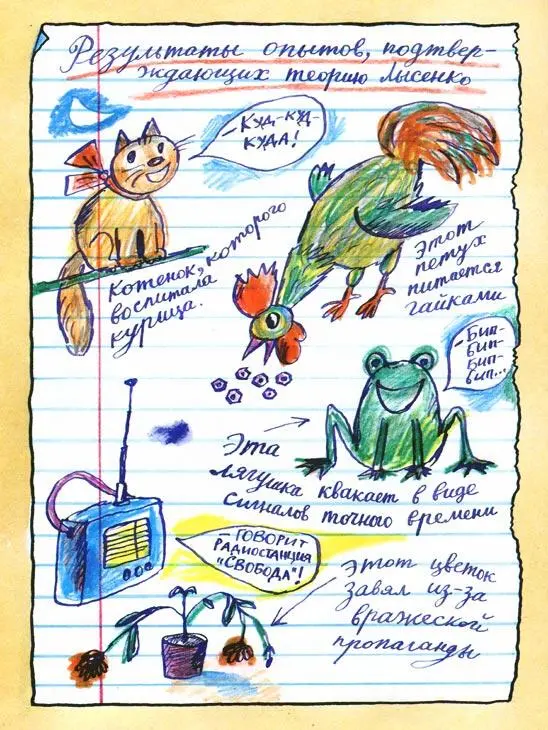 Результаты опытов, подтвер-
ждающих теорию Лысенко
-Куд-куд-
куда!
Котенок, которого
воспитала
курица.
Этот
петух
питается
гайками
-Бип-
бип-
бип-
бип...
Эта
лягушка квакает в виде
сигналов точного времени
-ГОВОРИТ
РАДИОСТАНЦИЯ
"СВОБОДА"!
Этот цветок
завял из-за
вражеской
пропаганды